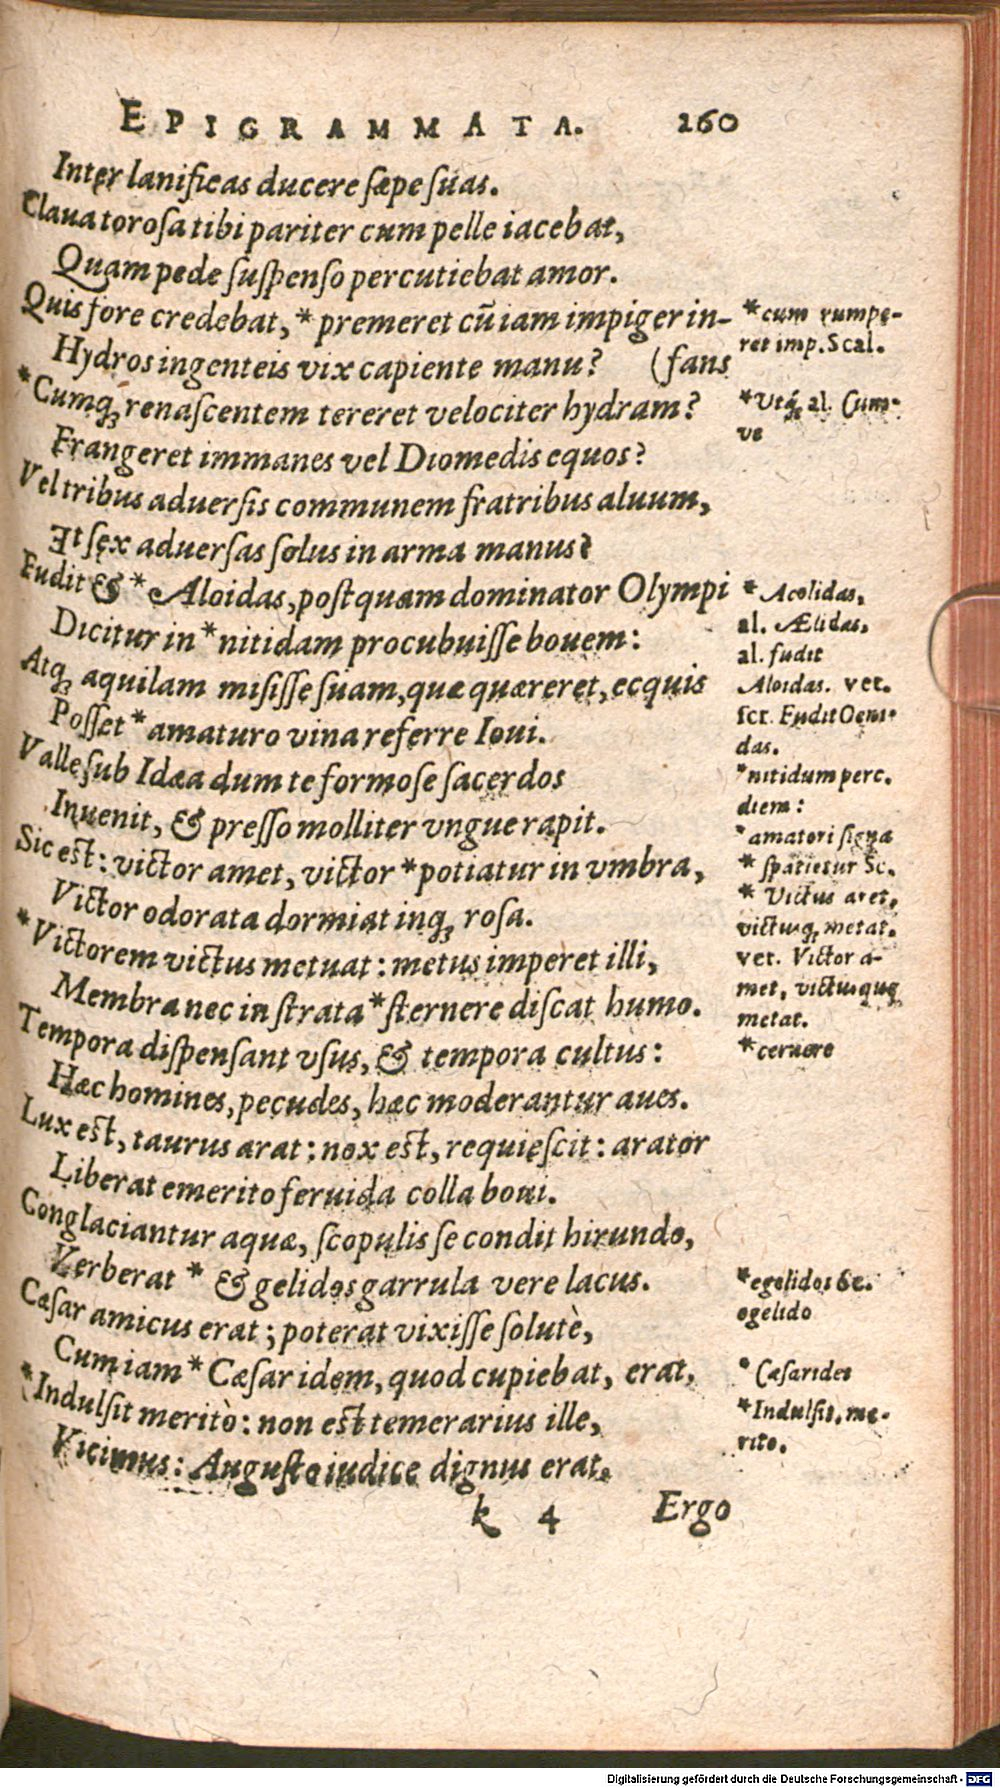 EPIGRAMMATA. 260
Inter lanificas ducere sæpe suas.
Claua torosa tibi pariter cum pelle iacebat,
Quam pede suspenso percutiebat amor.
Quis fore credebat, * premeret cū iam impiger in-
Hydros ingenteis vix capiente manu? (fans
*Cumq; renascentem tereret velociter hydram?
Frangeret immanes vel Diomedis equos?
Vel tribus aduersis communem fratribus aluum,
Et sex aduersas solus in arma manus?
Fudit & * Aloidas, postquam dominator Olympi
Dicitur in * nitidam procubuisse bouem:
Atq; aquilam misisse suam, quæ quæreret, ecquis
Posset * amaturo vina referre Ioui.
Valle sub Idæa dum te formose sacerdos
Inuenit, & presso molliter vngue rapit.
Sic est: victor amet, victor * potiatur in vmbra,
Victor odorata dormiat inq; rosa.
*Victorem victus metuat: metus imperet illi,
Membra nec in strata * sternere discat humo.
Tempora dispensant vsus, & tempora cultus:
Hæc homines, pecudes, hæc moderantur aues.
Lux est, taurus arat: nox est, requiescit: arator
Liberat emerito feruida colla boui.
Conglaciantur aquæ, scopulis se condit hirundo,
Verberat * & gelidos garrula vere lacus.
Cæsar amicus erat; poterat vixisse solutè,
Cum iam * Cæsar idem, quod cupiebat, erat,
*Indulsit meritò: non est temerarius ille,
Vicimus: Augusto iudice dignus erat.
k 4 Ergo
*cum rumpe-
ret imp. Scal.
*Vtq; al. Cum-
ve
* Acolidas,
al. Ælidas,
al. fudit
Aloidas. vet.
scr. Fudit Oeni-
das.
*nitidum perc.
diem:
*amatori signa
* spatietur Sc.
* Victus aret,
victusq; metat.
vet. Victor a-
met, victusque
metat.
*cernere
*egelidos &c.
egelido
* Cæsarides
*Indulsit, me-
rito.
Digitalisierung gefördert durch die Deutsche Forschungsgemeinschaft - DFG